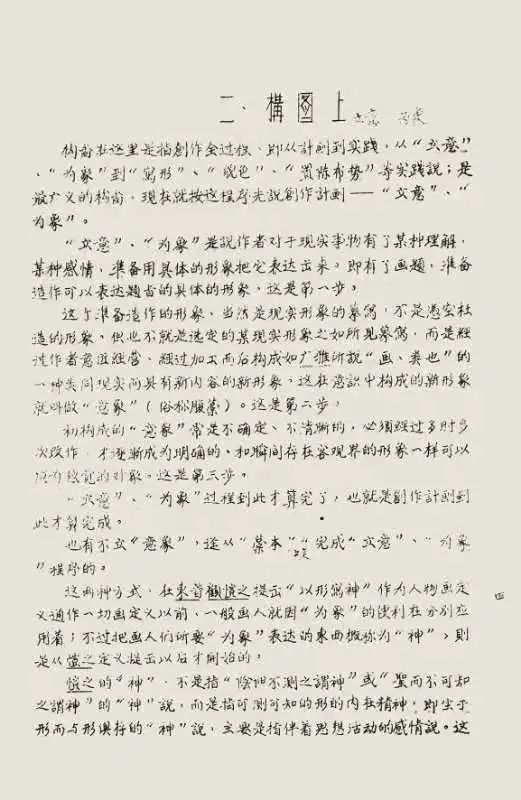 二、構图上 立意 为象
构图在这里是指創作全过程、即从計划到实践,从“立意”
、“为象”到“寫形”、“貌色”、“置陈布势”等实践説;是
最广义的构图,现在就按这程序先説創作計划——“立意”、“
为象”。
“立意”、“为象”是説作者对于现实事物有了某种理解,
某种感情,準备用具体的形象把它表达出来,即有了画题,準备
造作可以表达题旨的具体的形象,这是第一步,
这个準备造作的形象,当然是现实形象的摹寫,不是憑空杜
造的形象,但也不就是选定的某现实形象之如所見摹寫,而是經
过作者意匠經营、經过加工而后构成如广雅所説“画、类也”的
一种类同现实而具有新内容的新形象,这在意识中构成的新形象
就叫做“意象”(俗称腹藁)。这是第二步,
初构成的“意象”常是不确定、不清晰的,必須經过多时多
次改作,才逐渐成为明确的、和瞬间存在客观界的形象一样可以
成为感覚的对象。这是第三步。
“立意”、“为象”过程到此才算完了,也就是創作計劃到
此才算完成,
也有不立“意象”,逕从“藁本”完成“立意”、“为象
”程序的。
这两种方式,在東晋顧愷之提出“以形寫神”作为人物画定
义通作一切画定义以前、一般画人就因“为象”的便利在分别应
用着;不过把画人们所要“为象”表达的東西概称为“神”,則
是从愷之定义提出以后才開始的,
愷之的“神”,不是指“陰陽不測之謂神”或“聖而不可知
之謂神”的“神”説,而是指可測可知的形的内在精神,即生于
形而与形俱存的“神”説,主要是指伴着思想活动的感情説。这
四